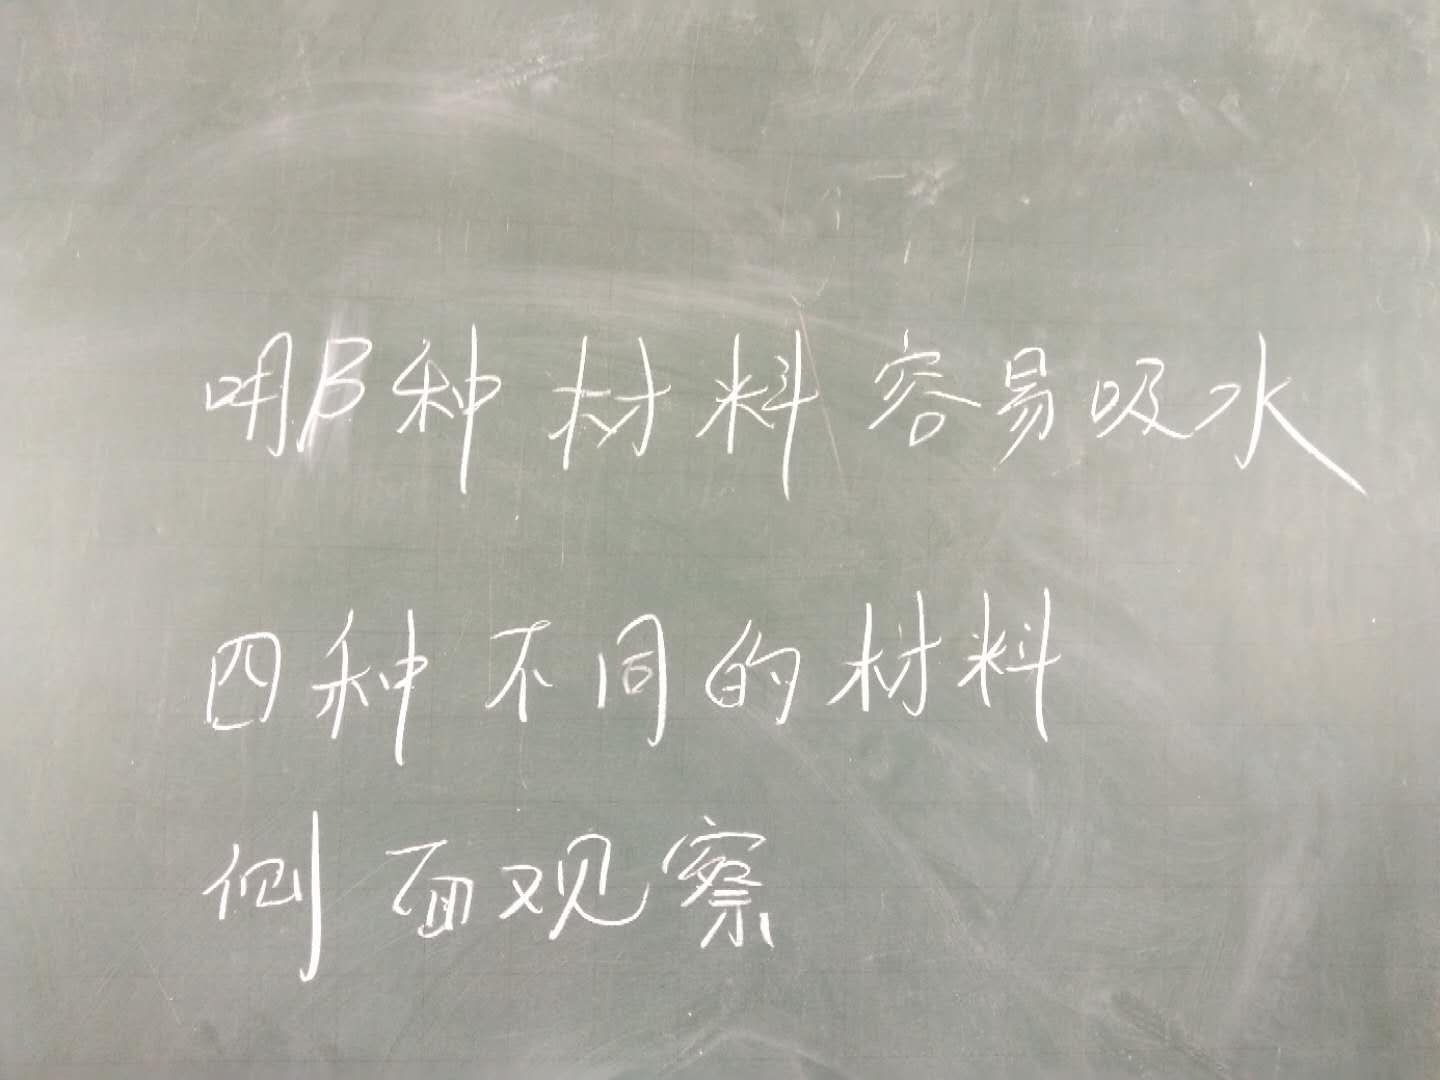 哪种材料容易吸水
四种不同的材料
侧面观察